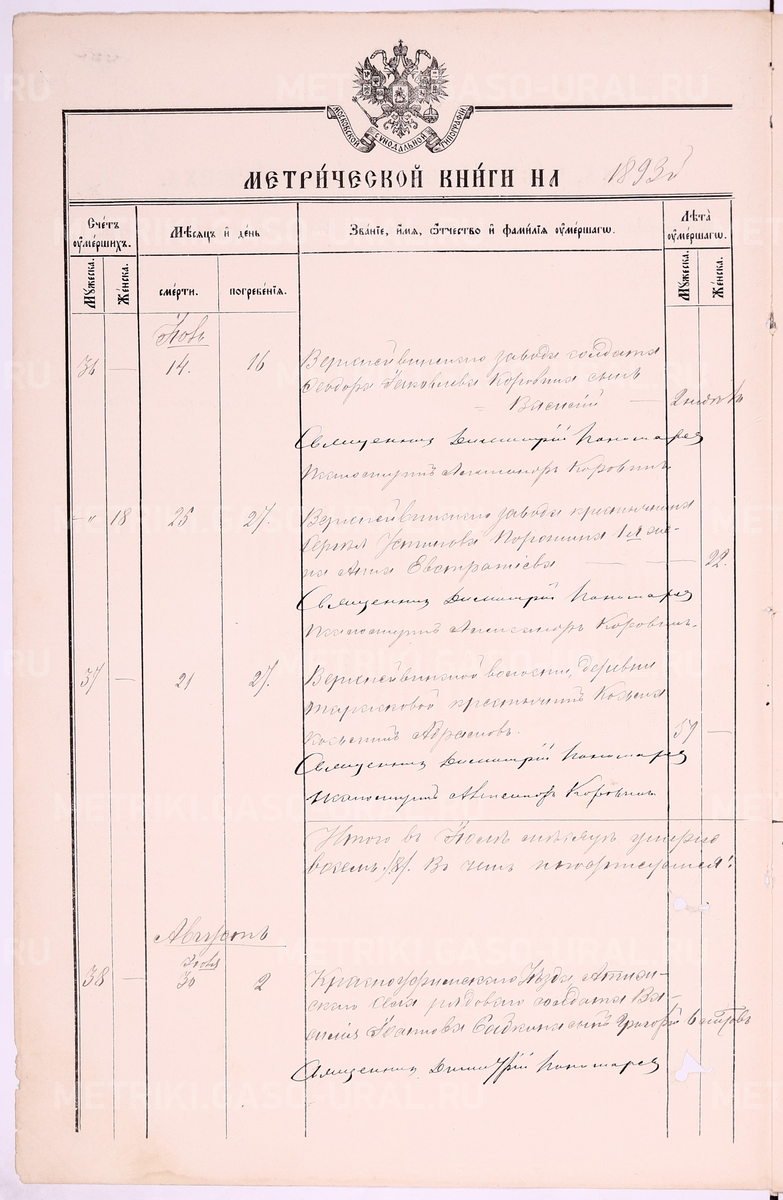 МОСКОВСКОЙ СѴНОДАЛЬНОЙ ТИПОГРАФІИ
МЕТРИ́ЧЕСКОЙ КНИ́ГИ НА 1893й
Счетъ ᲂу҆ме́ршихъ.
Мꙋжеска.
Же́нска.
Мѣ́сяцъ и҆ де́нь
сме́рти.
погребе́нїѧ.
Зва́нїе, и҆́мѧ, ѻ҆́тчество и҆ фамилїѧ ᲂу҆ме́ршагѡ.
Лѣ́та ᲂу҆ме́ршагѡ.
Мꙋжеска.
Же́нска.
Іюль
36 — 14. 16 Верхнейвинскаго завода солдата
Ѳеодора Іаковлева Коровина сынъ
Василий — 2 недѣль
Священникъ Димитрій Пономарев
Псаломщикъ Александръ Коровинъ.
— " 18 25 27. Верхнейвинскаго завода крестьянина
Сергѣя Устинова Порошина 1й же-
на Анна Евстратіева — — 22.
Священникъ Димитрій Пономарев
Псаломщикъ Александръ Коровинъ.
37 — 21 27. Верхнейвинской волости, деревни
крестьянинъ Козьма
Козьминъ Абрамовъ. 57 —
Священникъ Димитрій Пономарев
Псаломщикъ Александръ Коровинъ
Итого въ Іюлѣ мѣсяцѣ умерло
восемь /8/. Въ чемъ и подписуемся:
Августъ
Іюля
38 — 30 2 Красноуфимскаго Уѣзда,
села рядоваго солдата Ва-
силія Іоаннова сынъ Григорій 6 мѣсяцовъ
Священникъ Димитрій Пономарев
METRIKI.GASO-URAL.RU